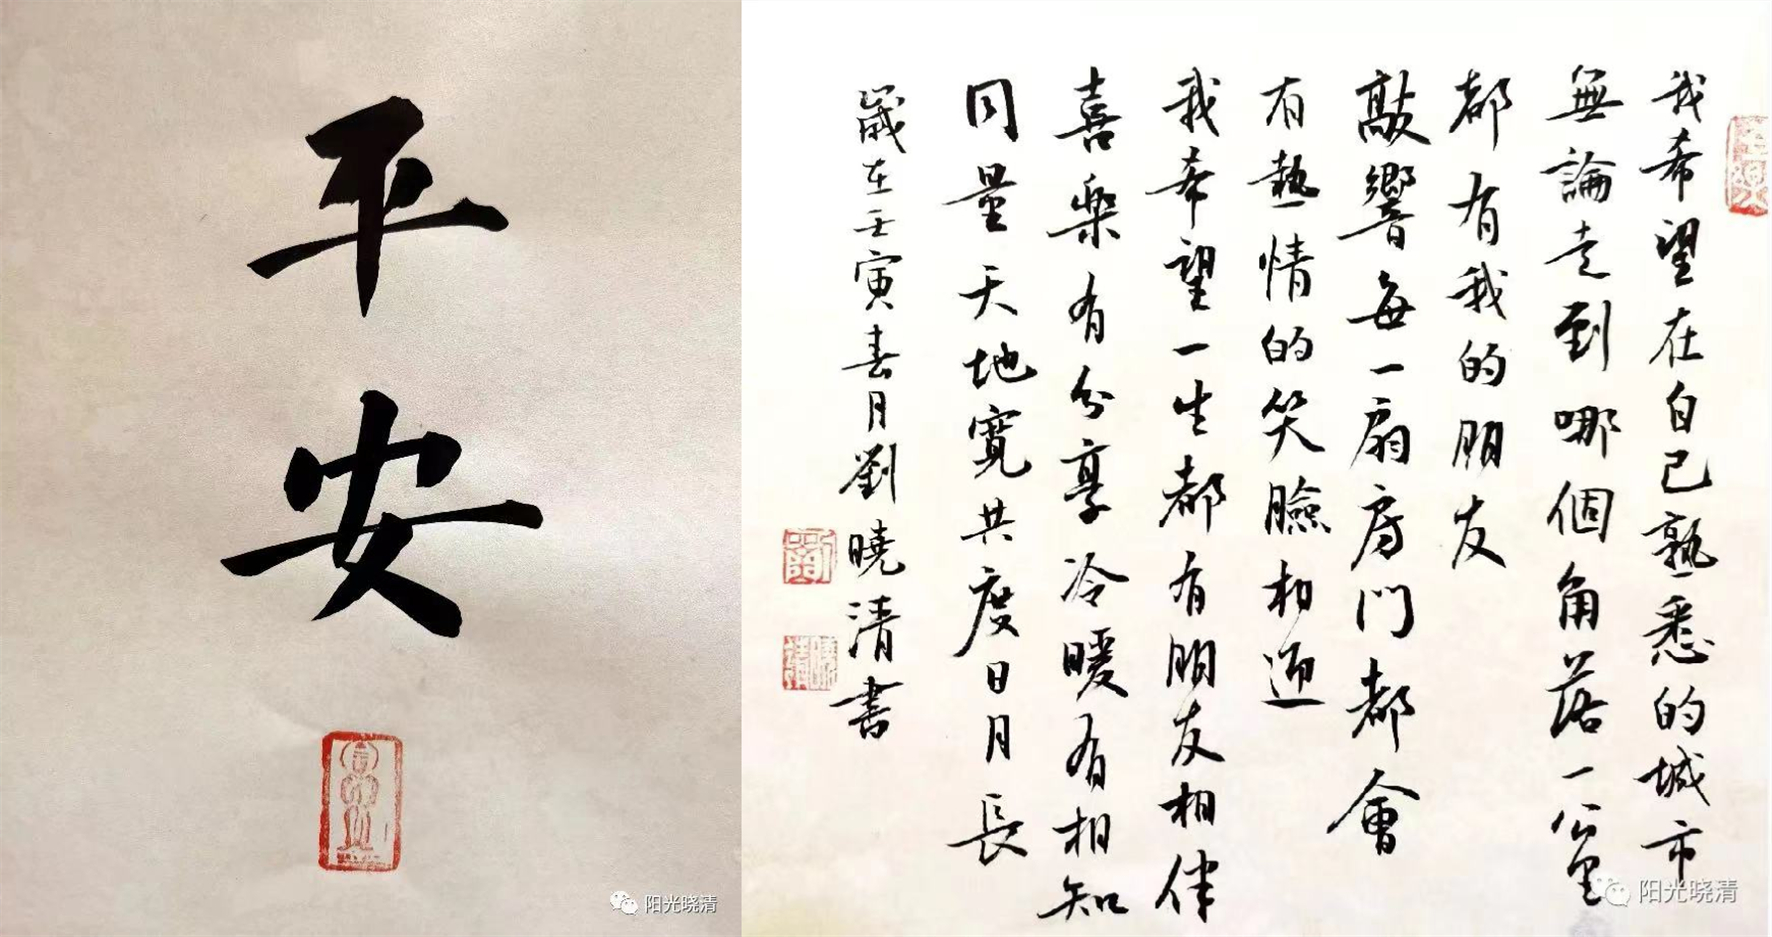 平安
阳光晓清
我希望在自己熟悉的城市
無論走到哪個角落一公里
都有我的朋友
敲響每一扇房門都會
有熱情的笑臉相迎
我希望一生都有朋友相伴
喜樂有分享冷暖有相知
同量天地寬共度日月長
歲在壬寅春月劉曉清書
劉
阳光晓清